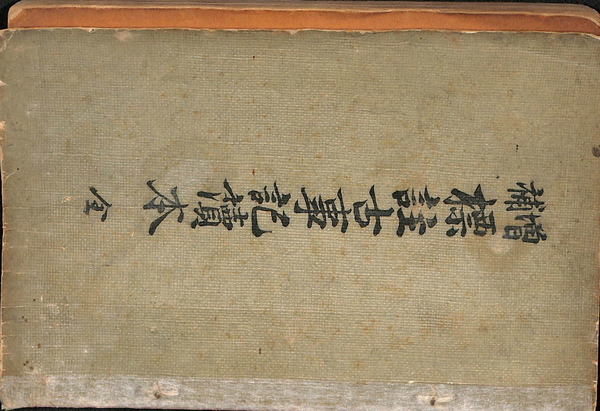 増補
標註古事記讀本 全